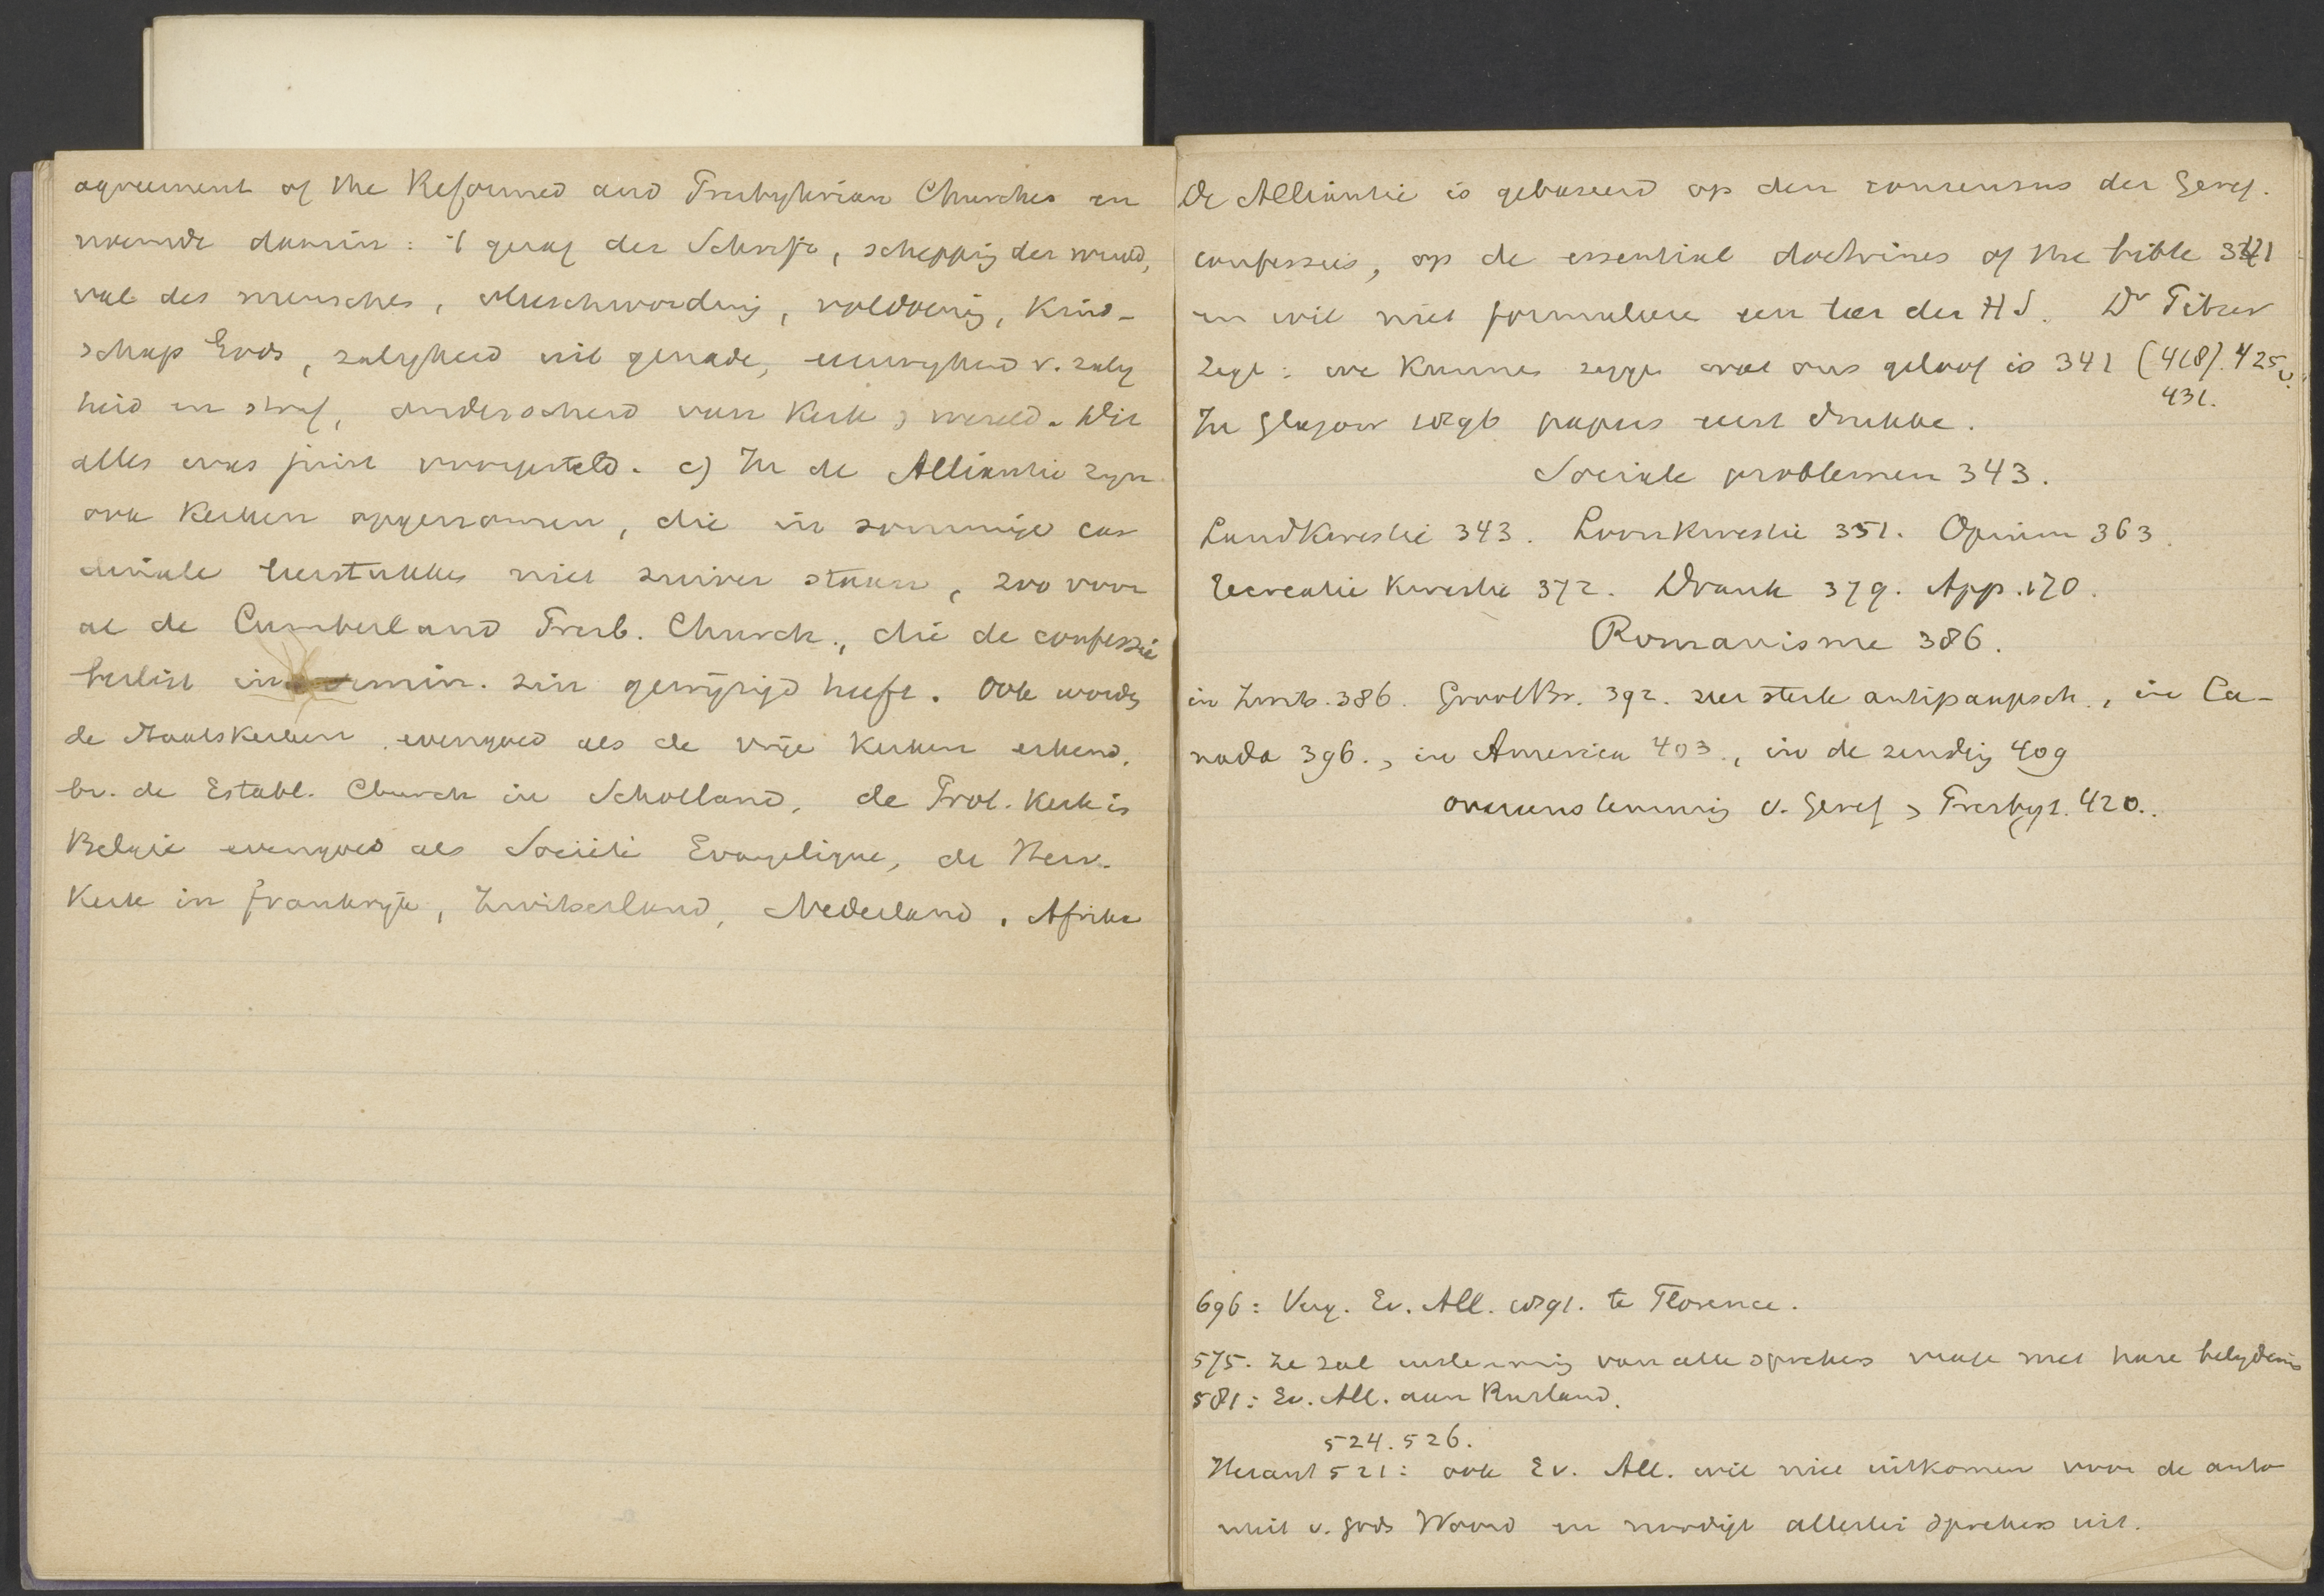 agreement of the Reformed and Presbyterian Churches en
noemde daarin: 't gezag der Schrift, schepping der wereld,
val des menschen, Menschwording, voldoening, Kind-
schap Gods, zaligheid uit genade, eeuwigheid v. zalig
heid en straf, onderscheid van Kerk & wereld. Dit
alles was juist voorgesteld. c) In de Alliantie zijn
ook Kerken opgenomen, die in sommige car
dinale leerstukken niet zuiver staan, zoo voor
al de Cumberland Presb. Church., die de confessie
beslist in armin. zin gewijzigd heeft. Ook worden
de Staatskerken evengoed als de vrije Kerken erkend,
bv. de Establ. Church in Schotland, de Prot. Kerk in
België evengoed als Société Evangelique, de Herv.
Kerk in Frankrijk, Zwitserland, Nederland, Afrika
De Alliantie is gebaseerd op den consensus der Geref.
confessies, op de essential doctrines of the bible 321
en wil niet formuleren een leer der HS. Dr
zegt: we kunnen zeggen wat ons geloof is 341 (418). 425v.
431.
In Glasgow 1896 papers eerst drukken.
Sociale problemen 343.
Landkwestie 343. Loonkwestie 351. Opium 363.
Recreatie kwestie 372. Drank 379. App. 170.
Romanisme 386.
in Zwits. 386. GrootBr. 392. zeer sterk antipaapsch., in Ca-
nada 396., in America 403., in de zending 409
overeenstemming v. Geref & Presbyt. 420..
696: Verg. Ev. All. 1891. te Florence.
575. Ze zal instemming van alle sprekers vragen met hare belijdenis
581: Ev. All. aan Rusland.
524. 526.
Heraut 521: ook Ev. All. wil niet uitkomen voor de auto
riteit v. Gods Woord en noodigt allerlei sprekers uit.